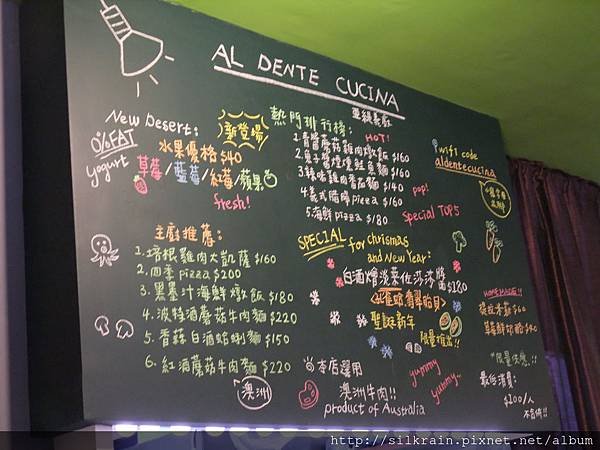 AL DENTE CUCINA
亞緹義廚
New Desert:
新登場
0%FAT
yogurt
水果優格 $40
草莓/藍莓/紅莓/蘋果
fresh!
熱門排行榜:
HOT!
1.青醬蘑菇雞肉燉飯 $160
2.魚子醬煙燻鮭魚麵 $160
3.辣味雞肉番茄麵 $140
4.義式臘腸 pizza $160
5.海鮮 pizza $180
pop!
Special TOP5
wifi code
aldentecucina
主廚推薦:
1.培根雞肉大凱薩 $160
2.四季 pizza $200
3.黑墨汁海鮮燉飯 $180
4.波特酒蘑菇牛肉麵 $220
5.香蒜白酒蛤蜊麵 $150
6.紅酒蘑菇牛肉麵 $220
澳洲
SPECIAL for chrismas
and New Year:
白酒燴淡菜佐莎莎醬 $180
聖誕新年
限量推出!!
yummy
yummy~
本店選用
澳洲牛肉!!
product of Australia
HOMEMADE!!
提拉米蘇 $60
草莓鮮奶酪
*限量供應!!
最低消費:
$100/人
http://silkrain.pixnet.net/album